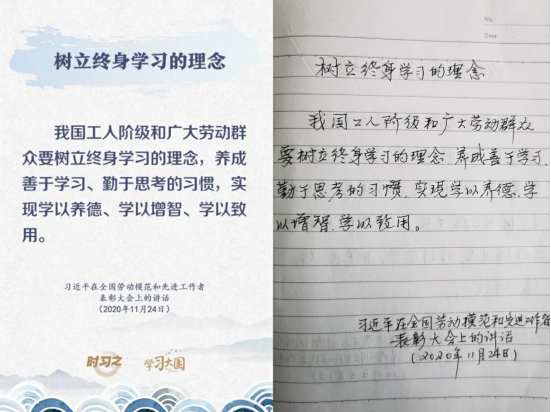 树立终身学习的理念
我国工人阶级和广大劳动群
众要树立终身学习的理念，养成
善于学习、勤于思考的习惯，实
现学以养德、学以增智、学以致
用。
习近平在全国劳动模范和先进工作者
表彰大会上的讲话
（2020年11月24日）
时习之
学习大国
No.
Date
树立终身学习的理念
我国工人阶级和广大劳动群众
要树立终身学习的理念，养成善于学习、
勤于思考的习惯，实现学以养德、学
以增智、学以致用。
习近平在全国劳动模范和先进工作者
表彰大会上的讲话
（2020年11月24日）